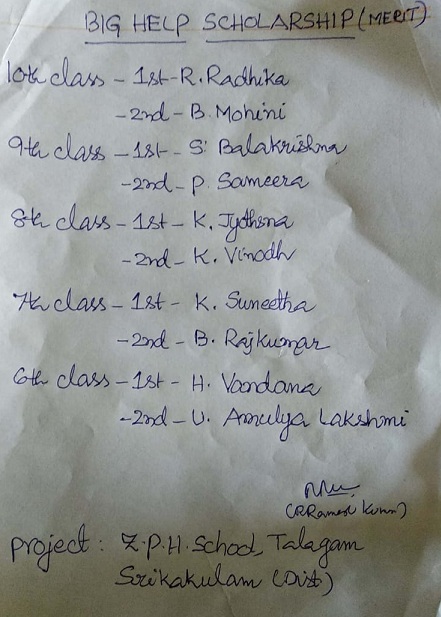 BIG HELP SCHOLARSHIP (MERIT)
10th class - 1st - R. Radhika
- 2nd - B. Mohini
9th class - 1st - S. Balakrishna
- 2nd - P. Sameera
8th class - 1st - K. Jyothsna
- 2nd - K. Vinodh
7th class - 1st - K. Suneetha
- 2nd - B. Rajkumar
6th class - 1st - H. Vandana
- 2nd - U. Amulya Lakshmi
Project : Z.P.H. School, Talagam
Srikakulam (Dist)